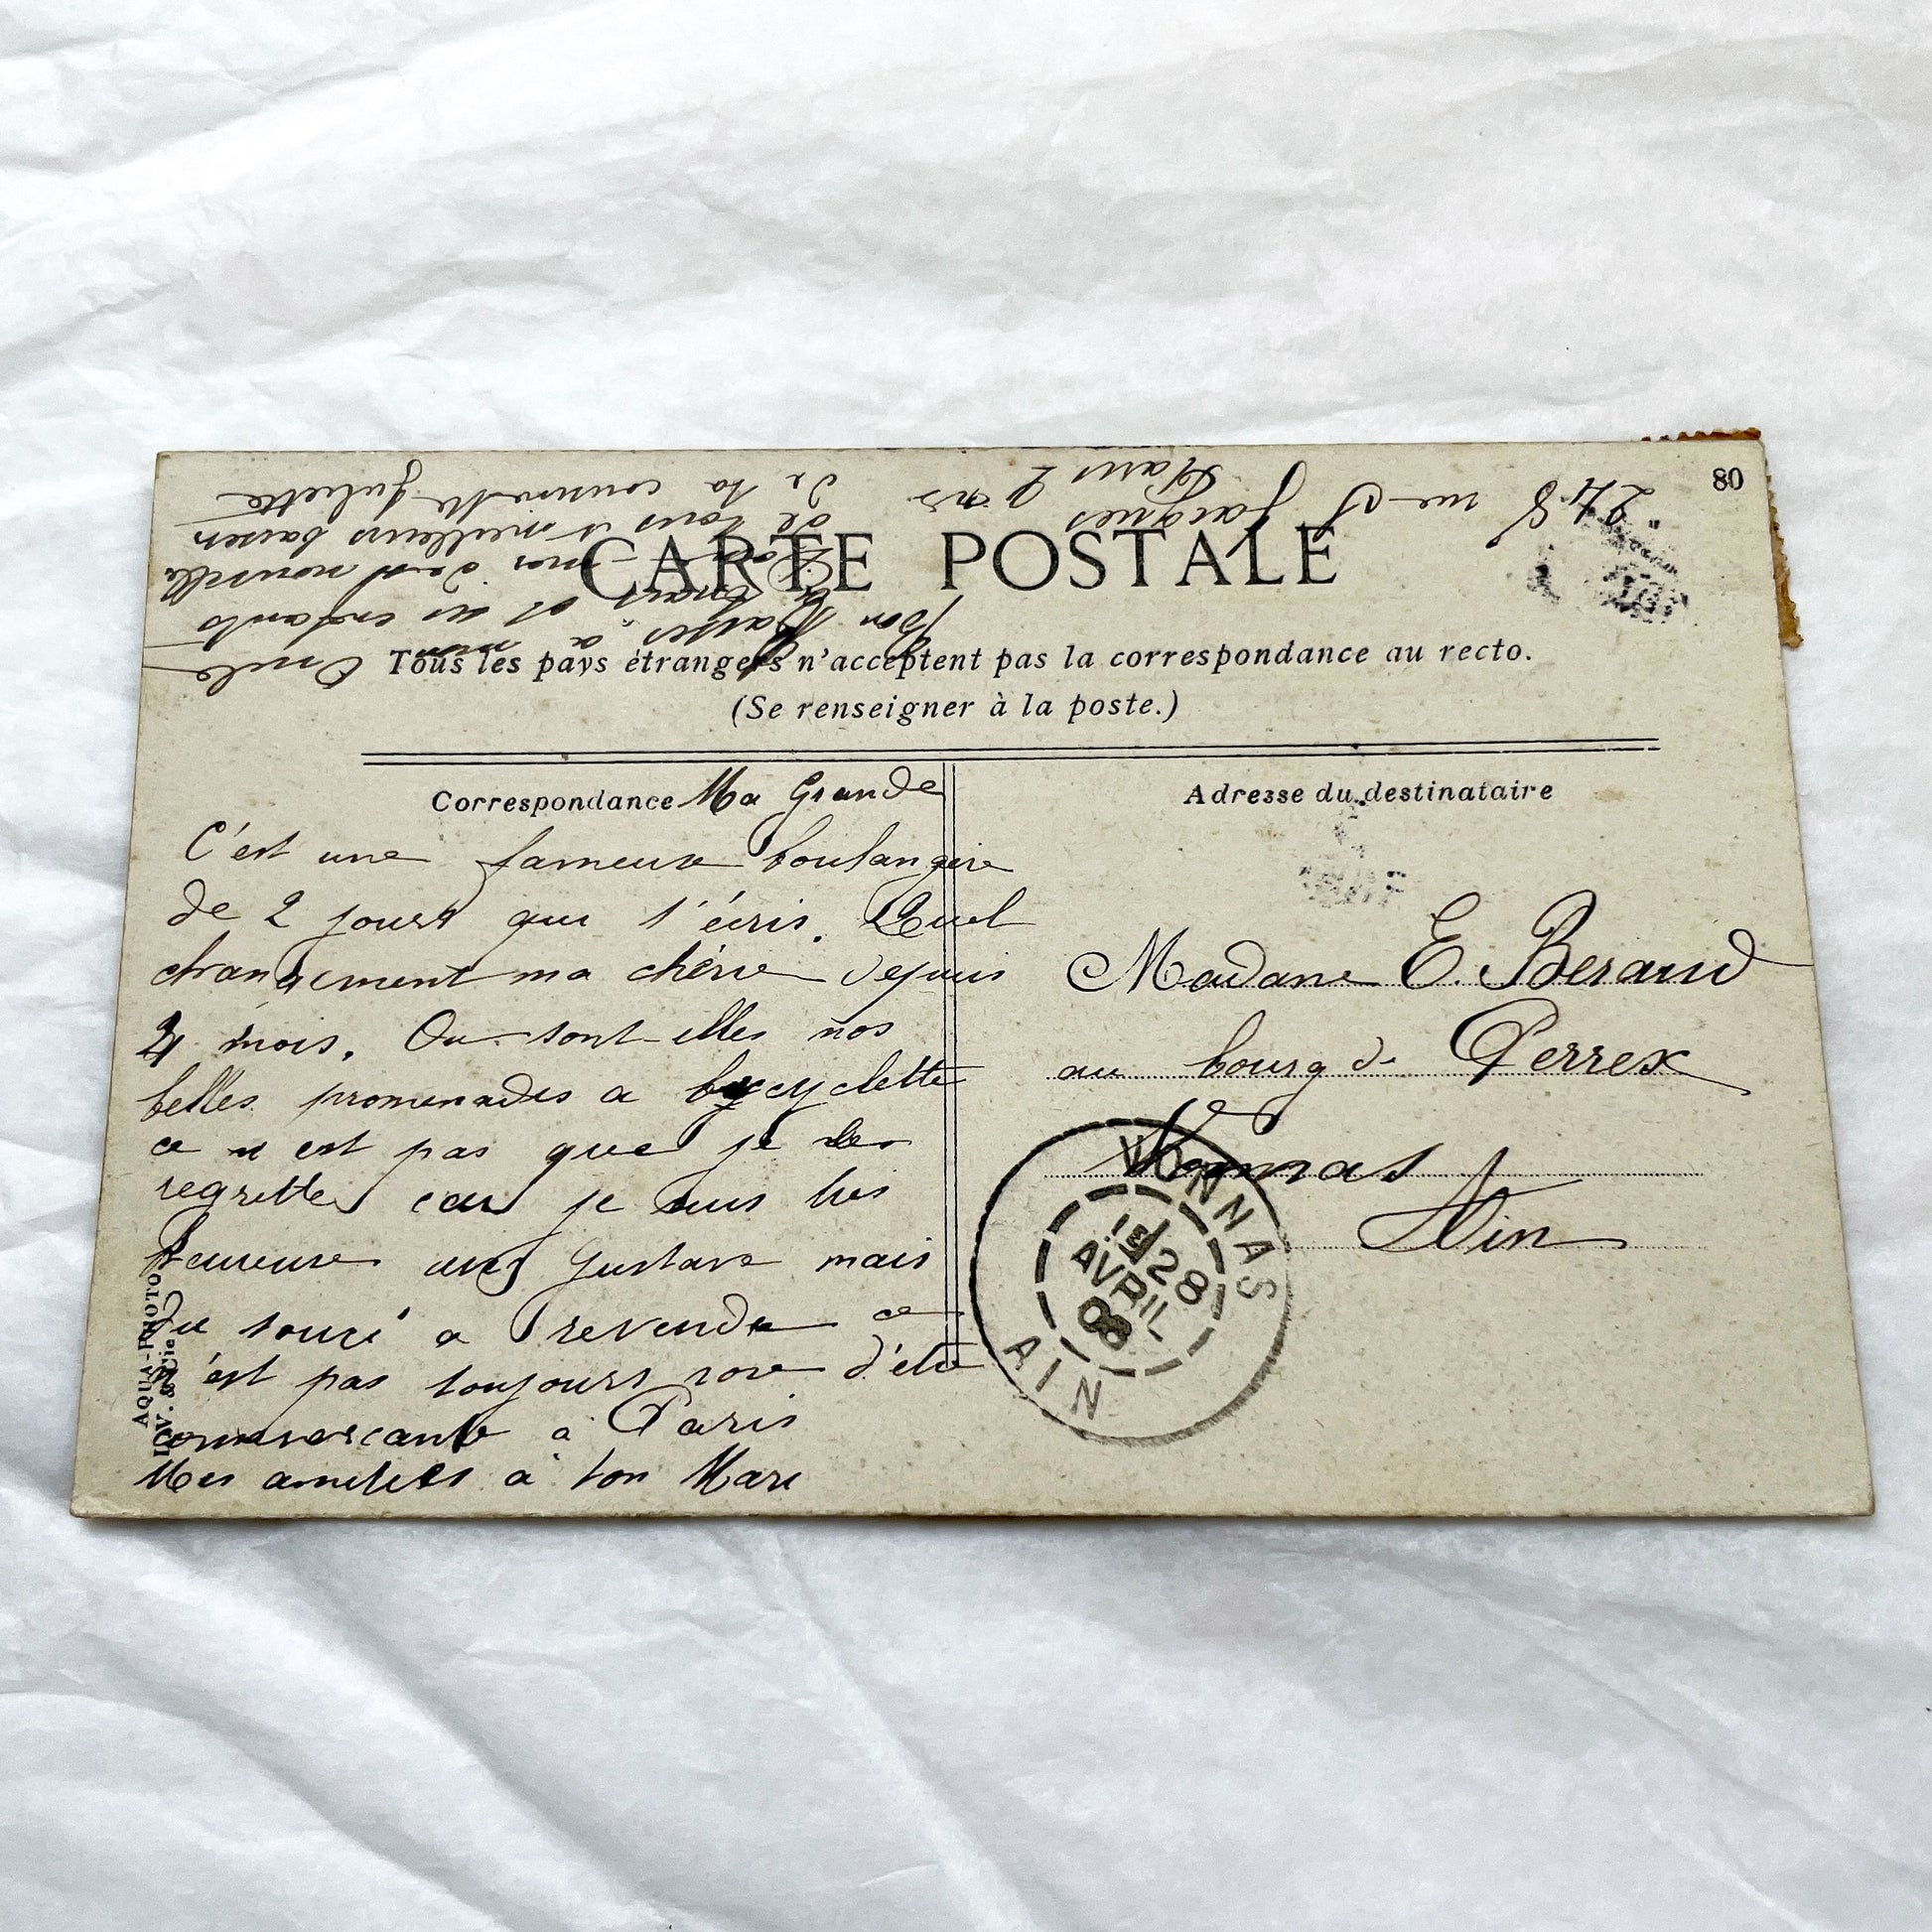 80
CARTE POSTALE
Tous les pays étrangers n'acceptent pas la correspondance au recto.
(Se renseigner à la poste.)
Correspondance
Adresse du destinataire
Ma Grande
C'est une fameuse boulangère
de 2 jours qui t'écris. Quel
changement ma chérie depuis
mois. Ou sont-elles nos
belles promenades a bycyclette
ce n est pas que je les
regrette car je suis très
heureuse avec Gustave mais
du souci a revendre ce
n'est pas toujours rose d'etre
commercante a Paris
Mes amitiés a ton Mari
Oncle
et ses enfants
de tous meilleurs baisers
de ta cousinette Juliette
248 rue St Jacques
Paris
Madame E. Beraud
au bourg de Perrex
Vonnas
Ain
VONNAS
28
AVRIL
08
AIN
AQUA-PHOTO